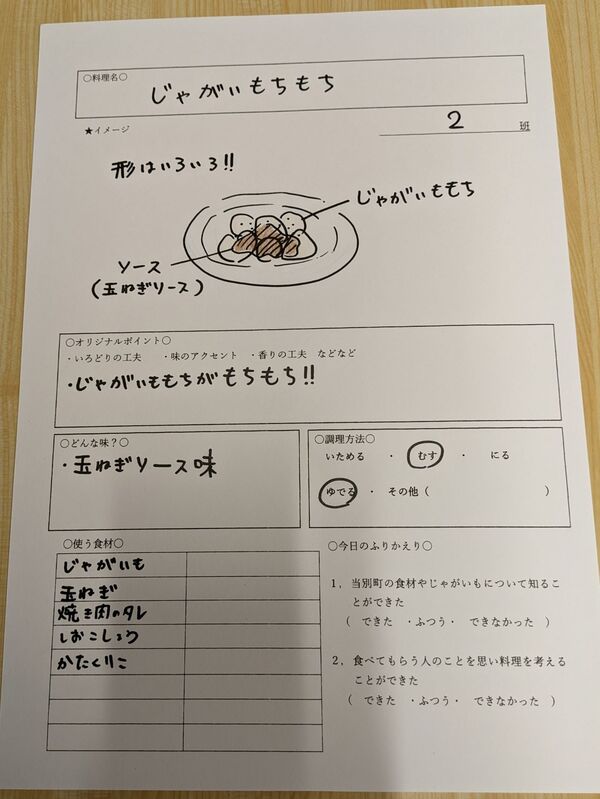 ○料理名○
じゃがいもちもち
★イメージ
2 班
形はいろいろ!!
じゃがいももち
ソース
(玉ねぎソース)
○オリジナルポイント○
・いろどりの工夫　・味のアクセント　・香りの工夫　などなど
・じゃがいももちがもちもち!!
○どんな味？○
・玉ねぎソース味
○調理方法○
いためる　・　むす　・　にる
ゆでる　・　その他（　　　　）
○使う食材○
じゃがいも
玉ねぎ
焼き肉のタレ
しおこしょう
かたくりこ
○今日のふりかえり○
1．当別町の食材やじゃがいもについて知るこ
とができた
（　できた　・ふつう・　できなかった　）
2．食べてもらう人のことを思い料理を考える
ことができた
（　できた　・ふつう・　できなかった　）